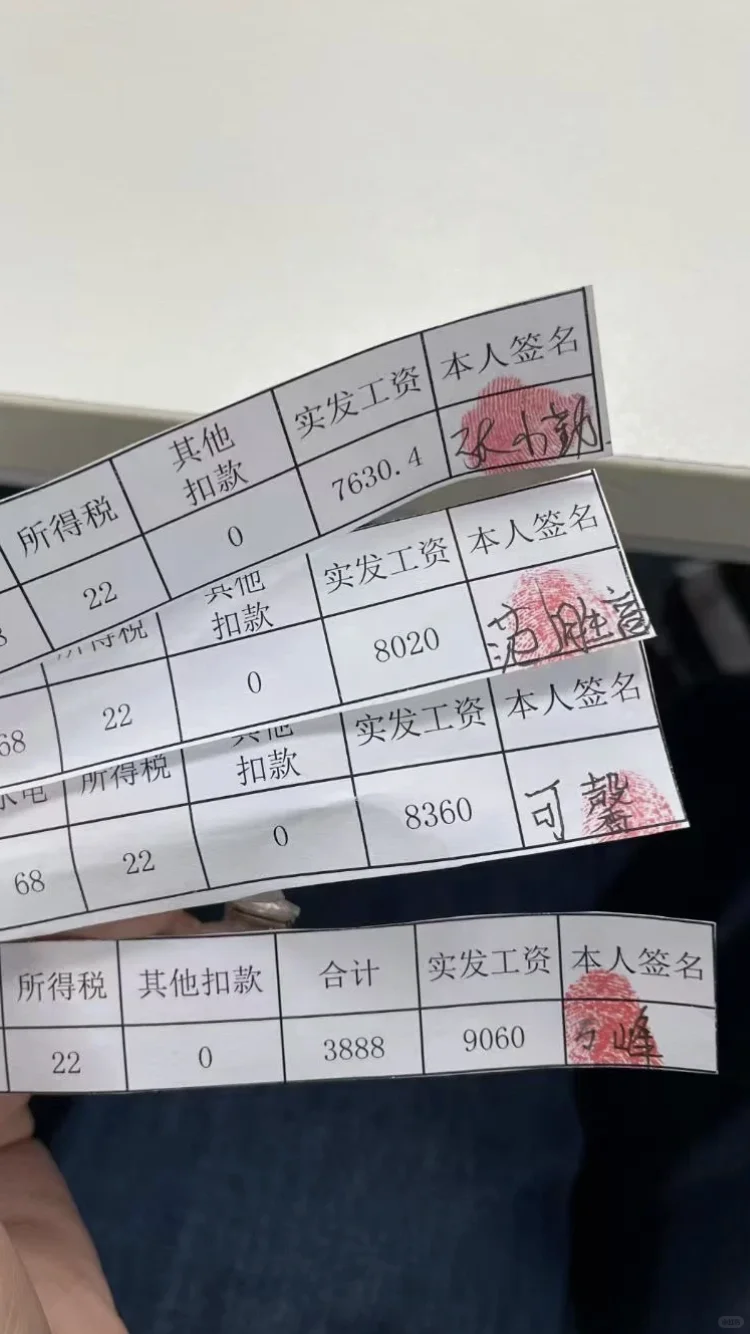 所得税 其他扣款 实发工资 本人签名
22 0 7630.4 张小勤
其他扣款 实发工资 本人签名
68 22 0 8020
所得税 其他扣款 实发工资 本人签名
68 22 0 8360 可馨
所得税 其他扣款 合计 实发工资 本人签名
22 0 3888 9060 峰